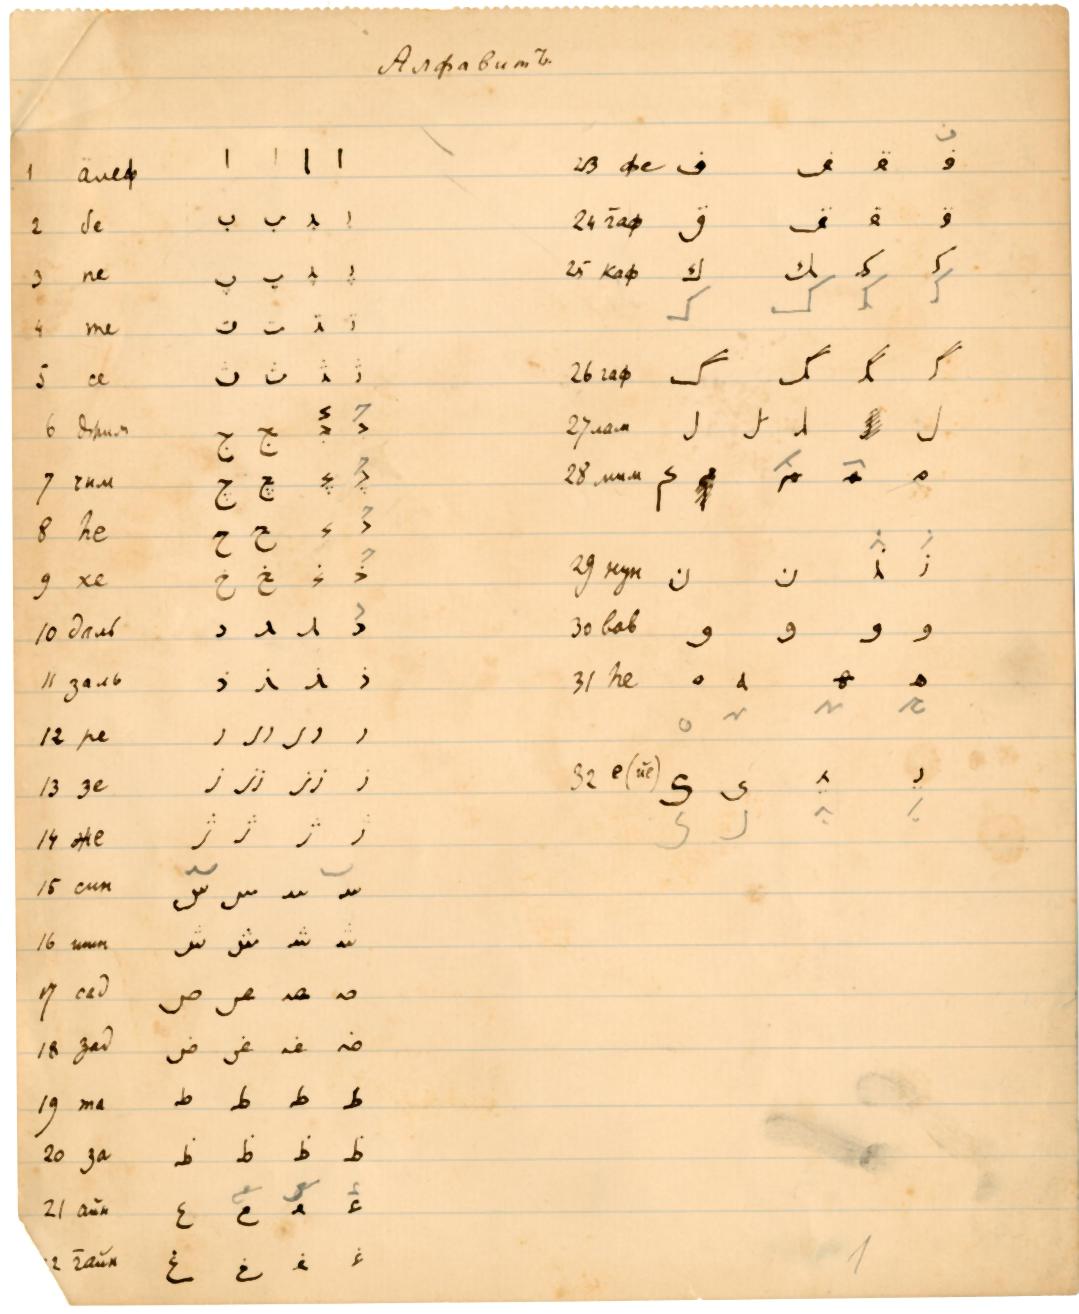 Алфавитъ.
1 äлеф ا ا ا ا
2 бе ب ب ب ب
3 пе پ پ پ پ
4 те ت ت ت ت
5 се ث ث ث ث
6 джим ج ج ج ج
7 чим چ چ چ چ
8 he ح ح ح ح
9 хе خ خ خ خ
10 даль د د د د
11 заль ذ ذ ذ ذ
12 ре ر ر ر ر ر ر
13 зе ز ز ز ز ز ز
14 же ژ ژ ژ ژ
15 син س س س س
16 шин ش ش ش ش
17 сад ص ص ص ص
18 зад ض ض ض ض
19 та ط ط ط ط
20 за ظ ظ ظ ظ
21 айн ع ع ع ع
22 г̄айн غ غ غ غ
23 фе ف ف ف ف
24 г̄аф ق ق ق ق
25 каф ك ك ك ك
ک ک ک ک
26 гаф گ گ گ گ
27 лам ل ل ل ل
28 мим م م م م
29 нун ن ن ن ن
30 вав و و و و
31 he ه ه ه ه
32 е (йе) ی ی ی ی
1